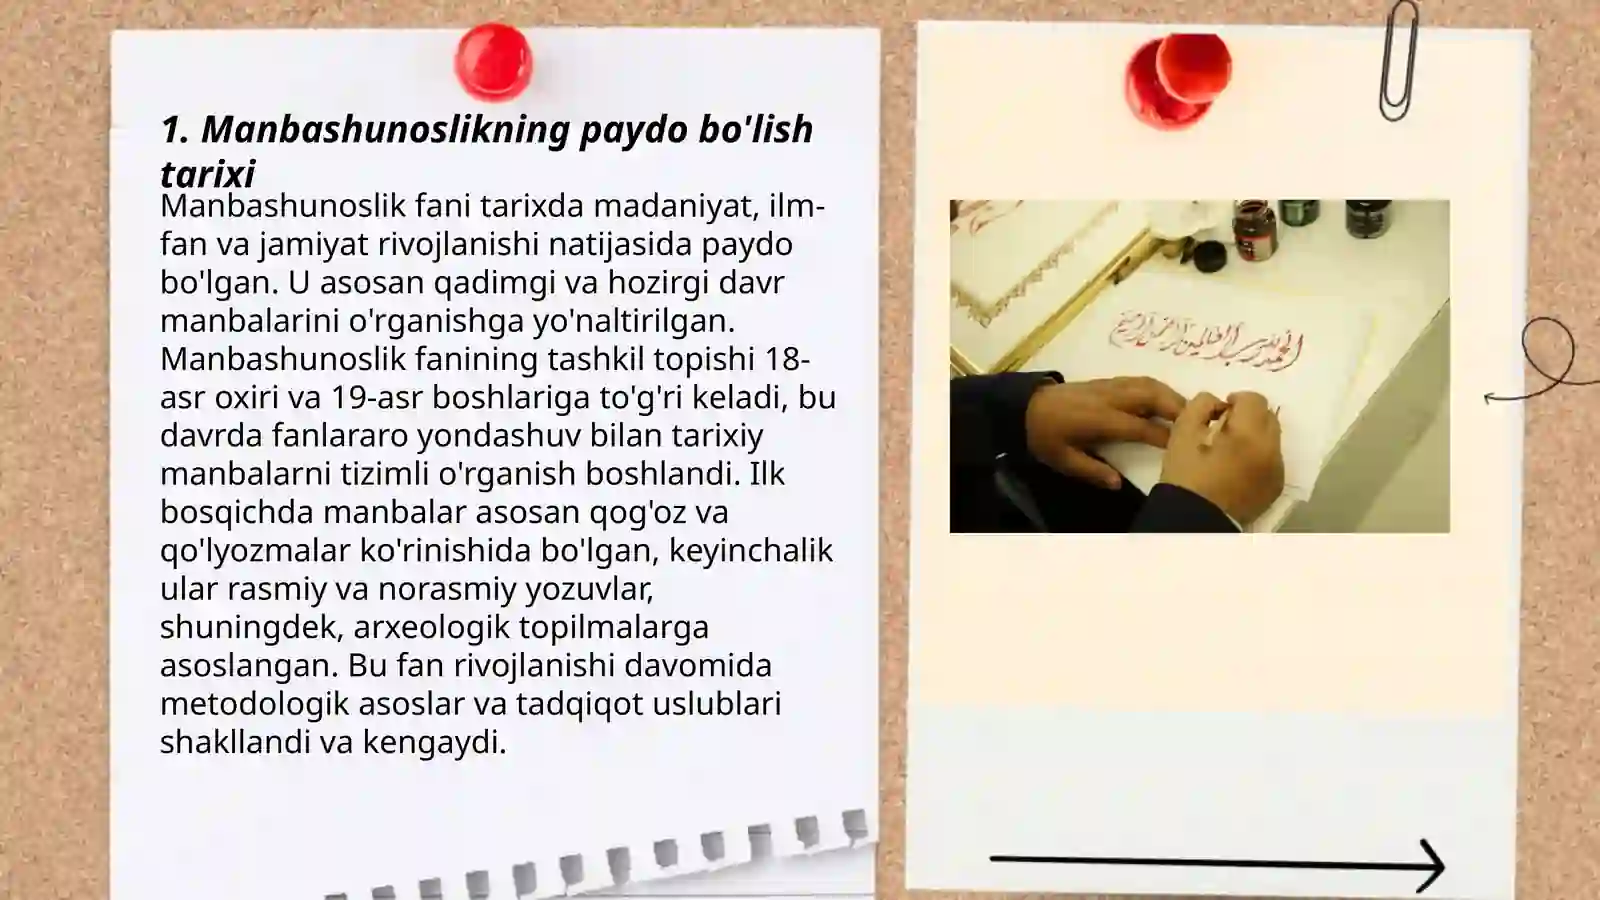 1. Manbashunoslikning paydo bo'lish
tarixi
Manbashunoslik fani tarixda madaniyat, ilm-
fan va jamiyat rivojlanishi natijasida paydo
bo'lgan. U asosan qadimgi va hozirgi davr
manbalarini o'rganishga yo'naltirilgan.
Manbashunoslik fanining tashkil topishi 18-
asr oxiri va 19-asr boshlariga to'g'ri keladi, bu
davrda fanlararo yondashuv bilan tarixiy
manbalarni tizimli o'rganish boshlandi. Ilk
bosqichda manbalar asosan qog'oz va
qo'lyozmalar ko'rinishida bo'lgan, keyinchalik
ular rasmiy va norasmiy yozuvlar,
shuningdek, arxeologik topilmalarga
asoslangan. Bu fan rivojlanishi davomida
metodologik asoslar va tadqiqot uslublari
shakllandi va kengaydi.
الحمد لله رب العالمين الرحمن الرحيم